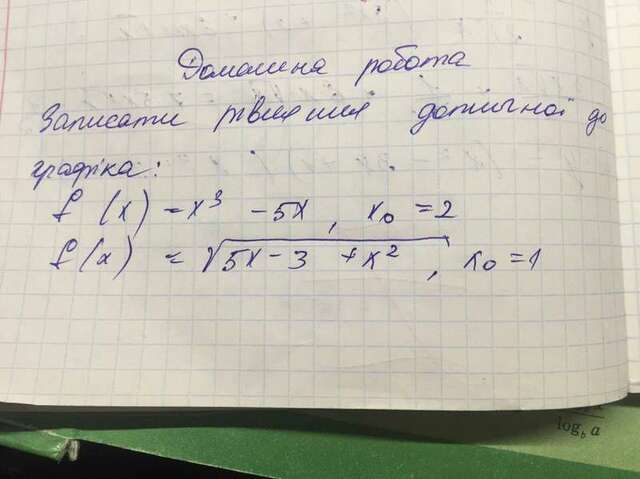 Домашня робота
Записати рівняння дотичної до
графіка:
f (x) = x³ - 5x , x₀ = 2
f(x) = √5x - 3 + x² , x₀ = 1
log_b a